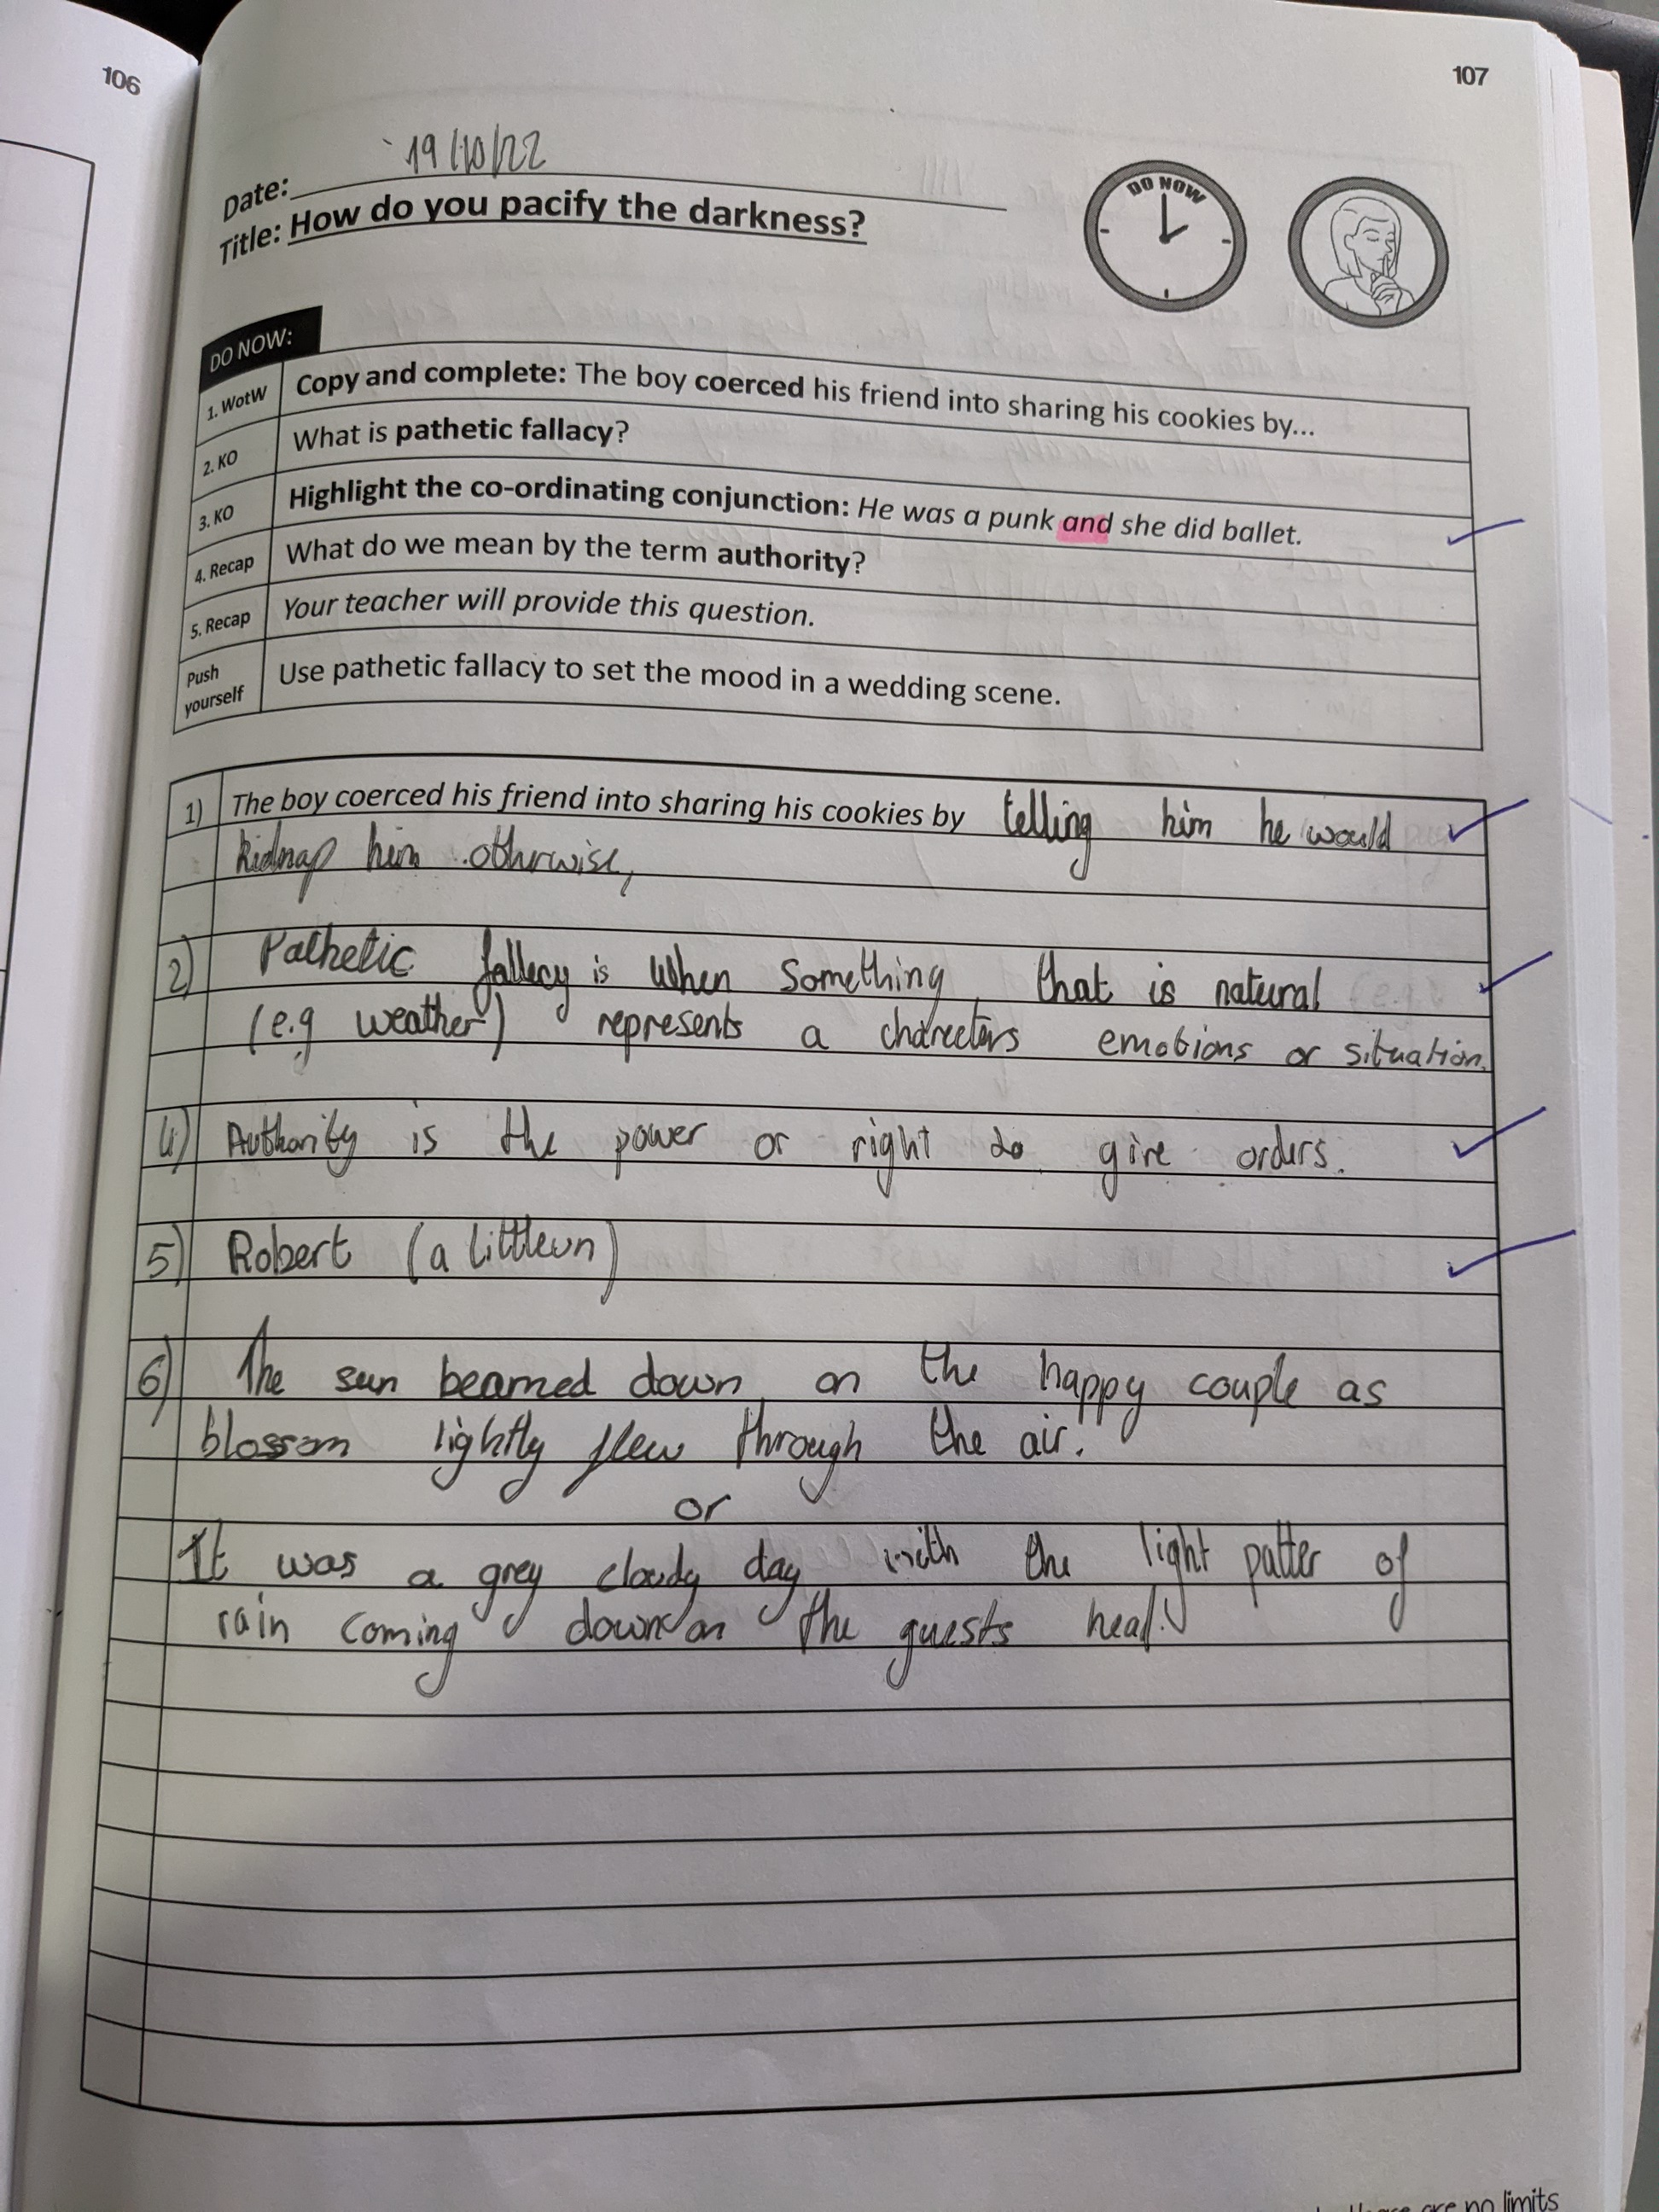 106
107
Date: 19/10/22
Title: How do you pacify the darkness?
DO NOW
DO NOW:
1. WotW Copy and complete: The boy coerced his friend into sharing his cookies by...
2. KO What is pathetic fallacy?
3. KO Highlight the co-ordinating conjunction: He was a punk and she did ballet.
4. Recap What do we mean by the term authority?
5. Recap Your teacher will provide this question.
Push yourself Use pathetic fallacy to set the mood in a wedding scene.
1) The boy coerced his friend into sharing his cookies by telling him he would
kidnap him otherwise,
2) Pathetic fallecy is when something that is natural
(e.g weather) represents a charecters emotions or situation.
4) Authority is the power or right to give orders.
5) Robert (a littleun)
6) The sun beamed down on the happy couple as
blossom lightly flew through the air.
or
It was a grey cloudy day with the light patter of
rain coming down on the guests head.
are no limits